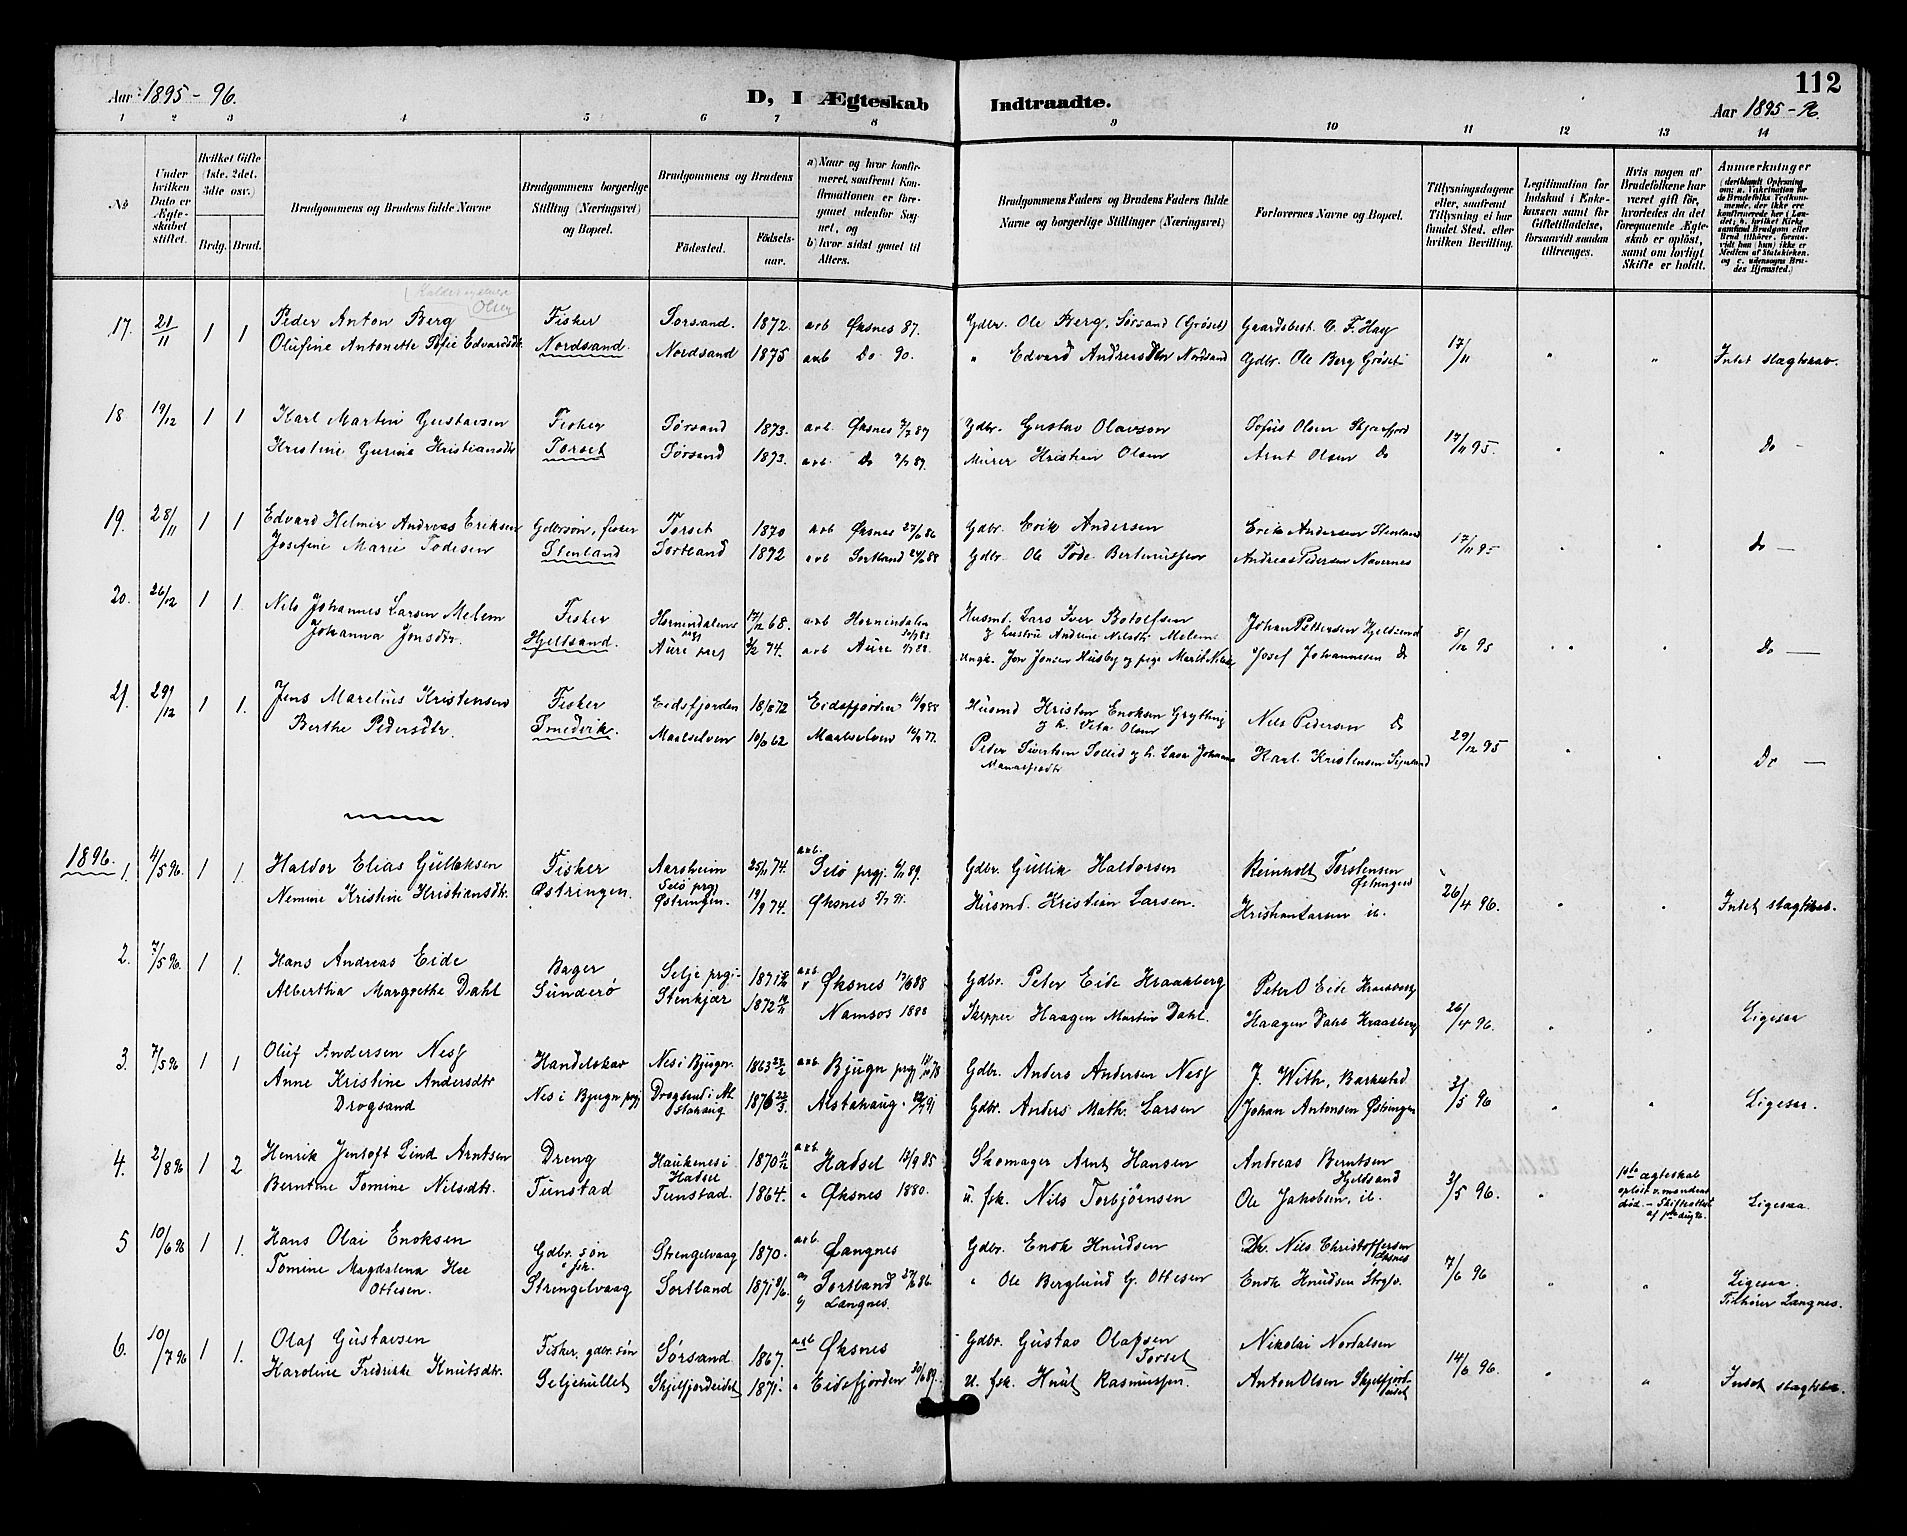 112
Aar 1895-96.
D, I Ægteskab
Indtraadte.
Aar 1895-96.
1 2 3 4 5 6 7 8 9 10 11 12 13 14
No
Under hvilken Dato er Ægteskabet stiftet.
Hvilket Gifte (1ste, 2det, 3die osv.)
Brdg. Brud.
Brudgommens og Brudens fulde Navne
Brudgommens borgerlige Stilling (Næringsvei) og Bopæl.
Brudgommens og Brudens
Födested. Födsels-aar.
a) Naar og hvor konfirmeret, saafremt Konfirmationen er foregaaet udenfor Sognet, og
b) hvor sidst gaaet til Alters.
Brudgommens Faders og Brudens Faders fulde Navne og borgerlige Stillinger (Næringsvei)
Forlovernes Navne og Bopæl.
Tillysningsdagene eller, saafremt Tillysning ei har fundet Sted, efter hvilken Bevilling.
Legitimation for Indskud i Enkekassen samt for Giftetilladelse, forsaavidt saadan tiltrænges.
Hvis nogen af Brudefolkene har været gift før, hvorledes da det foregaaende Ægteskab er opløst, samt om lovligt Skifte er holdt.
Anmærkninger
17. 21/11 1 1 Peder Anton Berg Fisker Sørsand. 1872. a&b Øksnes 87. Gdbr. Ole Berg, Sørsand (Grøset) Gaardsbest. C. F. Hay
Olsen
Olufine Antonette Sofie Edvardsdtr Nordsand. Nordsand 1875 a&b Do 90. " Edvard Andreassen Nordsand Gdbr. Ole Berg Grøset 17/11 " " Intet slægtskab.
18 19/12 1 1 Karl Martin Gustavsen Fisker Sørsand 1873. a&b Øksnes 7/7 87 Gdbr. Gustav Olavson Sofus Olsen Skjelfjord
Kristine Gurine Kristiansdtr Torset Sørsand 1873. a&b Do 7/7 87. Murer Kristian Olsen Arnt Olsen Do 17/11 95. " " Do -
19. 28/11 1 1 Edvard Helmer Andreas Eriksen Gdbrsøn, fisker Torset 1870 a&b Øksnes 27/6 86 Gdbr. Erik Andersen Erik Andersen Stenland
Josefine Marie Todesen Stenland Sortland 1872 a&b Sortland 24/6 88 Gdbr. Ole Tode Bertinussen Andreas Pedersen Navernes 17/11 95 " " Do -
20. 26/12 1 1. Nils Johannes Larsen Melem Fisker Hornindalens prgj 17/12 68. a&b Hornindalen Husmd. Lars Iver Botolfsen
og hustru Andrine Nilsdtr Melem Johan Pettersen Hjeldsand
Johanna Jonsdtr. Hjeltsand. Aure prgj 74. a&b Aure Ungk. Jon Jonsen Husby og pige Marit Nilsdtr Josef Johannesen Do 8/12 95 " " Do -
21. 29/12 1 1. Jens Marelius Kristensen Fisker Eidsfjorden 72 Eidsfjorden Husmd Kristen Enoksen Grytting
Nils Pedersen Do
Berthe Pedersdtr. Smedvik. Maalselven 62 Maalselven 77. Peder Sivertsen Sollid og h. Lava Johanna
Karl Kristensen 29/12 95 " " Do -
1896.
1. 4/5 96. 1 1. Haldor Elias Gulleksen Fisker Aarsheim 74. a&b. Selø prgj. 89. Gdbr. Gullik Haldorsen Reinholt Torstensen
Selø prgj Østringen
Nemine Kristine Kristiansdtr. Østringen. Østringen. 19/9 74. Øksnes 91. Husmd. Kristian Larsen. Kristian Larsen ib. 26/4 96. " " Intet slægtskab.
2. 7/5 96. 1 1. Hans Andreas Eide Bager Selje prgj. 1871 a&b Øksnes 88 Gdbr. Peter Eide Kraakberg Peter O Eide Kraakberg
Albertha Margrethe Dahl Sunderø Stenkjær 1872 Namsos 1888 Skipper Haagen Martin Dahl. Haagen Dahl Kraakberg 26/4 96. " " Ligesaa
3. 7/5 96 1 1 Oluf Andersen Nesf Handelskar Nes i Bjugn. 1863 a&b Bjugn prgj 78 Gdbr. Anders Andersen Nesf J. With, Barkestad
Anne Kristine Andersdtr Nes i Bjugn prgj Drogsand i Alstahaug 1876 Alstahaug. 91 Gdbr. Anders Math. Larsen Johan Antonsen Østringen 3/5 96 " " Ligesaa.
Drogsand
4. 2/8 96 1 2 Henrik Jentoft Lind Arntsen Dreng Haukenes i Hadsel 1870 a&b Hadsel 13/9 85 Skomager Arnt Hansen Andreas Berntsen Hjeldsand
Berntine Tomine Nilsdtr. Tunstad Tunstad. 1864. " Øksnes 1880. u. fsk. Nils Torbjørnsen Ole Jakobsen, ib. 3/5 96. " 1ste ægteskab opløst v. mandens død. - Ligesaa.
5 10/6 96 1 1. Hans Olai Enoksen Gdbr. søn Strengelvaag 1870. a&b. Langnes Gdbr. Enok Knudsen Nils Christoffersen Øksnes
Tomine Magdalena Hee fsk. Strengelvaag Sortland 1871 a) Sortland 86. " Ole Berglund G. Ottesen Enok Knudsen Strglv. 7/6 96 " " Ligesaa.
Ottesen. b) Langnes. Tilhører Langnes.
6. 10/7 96 1 1. Olaf Gustavsen Fisker, gdbr. søn Sørsand 1867. a&b Øksnes Gdbr. Gustav Olafsen Torset Nikolai Nordalsen
Karoline Fredrikke Knutsdtr. Seljehullet Skjelfjordeidet 1871. " Eidsfjorden 30/6 89. u. fsk. Knut Rasmussen. Anton Olsen Skjelfjordeidet 14/6 96. " " Intet slægtska.